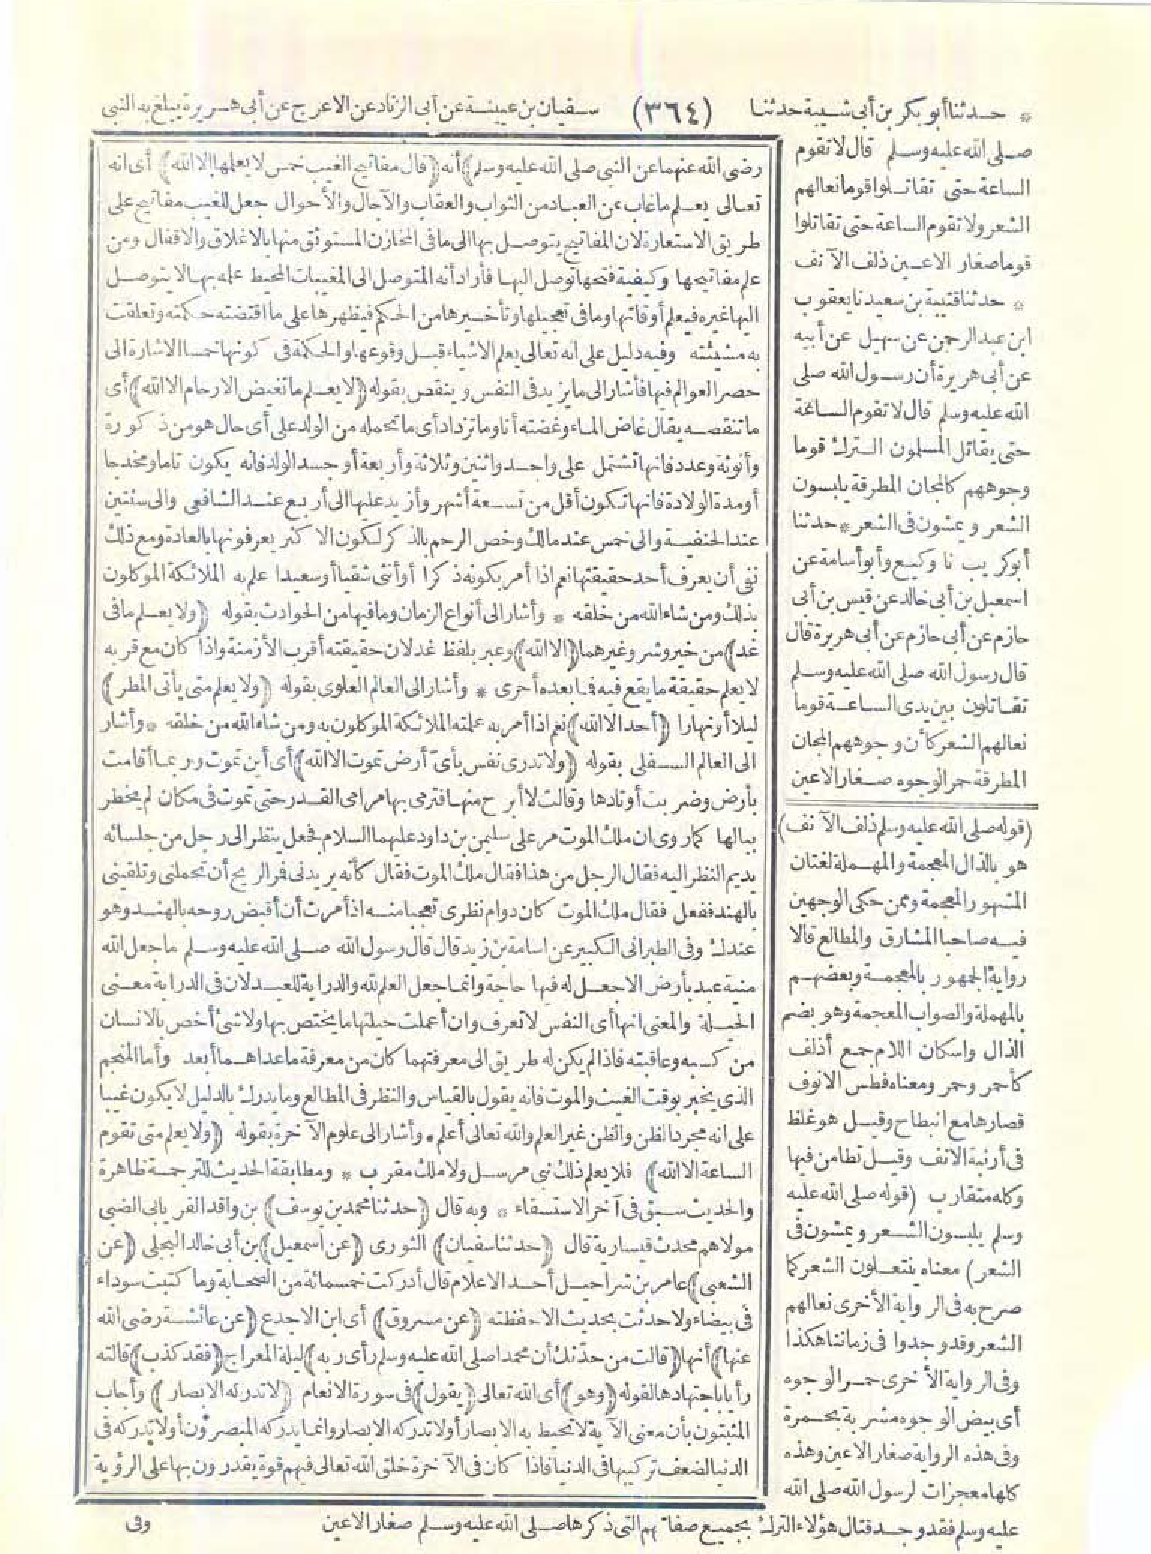 * حدثنا أبو بكر بن أبي شيبة حدثنا
(٣٦٤)
سفيان بن عيينة عن أبي الزناد عن الاعرج عن أبي هريرة يبلغ به النبي
صلى الله عليه وسلم قال لا تقوم
الساعة حتى تقاتلوا قوما نعالهم
الشعر ولا تقوم الساعة حتى تقاتلوا
قوما صغار الاعين ذلف الآنف
* حدثنا قتيبة بن سعيد نا يعقوب
ابن عبد الرحمن عن سهيل عن أبيه
عن أبي هريرة أن رسول الله صلى
الله عليه وسلم قال لا تقوم الساعة
حتى يقاتل المسلمون الترك قوما
وجوههم كالمجان المطرقة يلبسون
الشعر ويمشون في الشعر * حدثنا
أبو كريب نا وكيع وأبو أسامة عن
اسمعيل بن أبي خالد عن قيس بن أبي
حازم عن أبي حازم عن أبي هريرة قال
قال رسول الله صلى الله عليه وسلم
تقاتلون بين يدى الساعة قوما
نعالهم الشعر كأن وجوههم المجان
المطرقة حمر الوجوه صغار الاعين
(قوله صلى الله عليه وسلم ذلف الآنف)
هو بالذال المعجمة والمهملة لغتان
المشهور المعجمة وممن حكى الوجهين
فيه صاحبا المشارق والمطالع قالا
رواية الجمهور بالمعجمة وبعضهم
بالمهملة والصواب المعجمة وهو بضم
الذال واسكان اللام جمع أذلف
كأحمر وحمر ومعناه فطس الانوف
قصارها مع انبطاح وقيل هو غلظ
في أرنبة الانف وقيل تطامن فيها
وكله متقارب (قوله صلى الله عليه
وسلم يلبسون الشعر ويمشون في
الشعر) معناه ينتعلون الشعر كما
صرح به في الرواية الأخرى نعالهم
الشعر وقد وجدوا في زماننا هكذا
وفي الرواية الأخرى حمر الوجوه
أي بيض الوجوه مشربة بحمرة
وفي هذه الرواية صغار الاعين وهذه
كلها معجزات لرسول الله صلى الله
عليه وسلم فقد وجد قتال هؤلاء الترك بجميع صفاتهم التي ذكرها صلى الله عليه وسلم صغار الاعين
رضى الله عنهما عن النبي صلى الله عليه وسلم) أنه (قال مفاتيح الغيب خمس لا يعلمها الا الله) أي انه
تعالى يعلم ما غاب عن العباد من الثواب والعقاب والآجال والأحوال جعل للغيب مفاتيح على
طريق الاستعارة لان المفاتيح يتوصل بها الى ما في المخازن المستوثق منها بالاغلاق والاقفال ومن
علم مفاتيحها وكيفية فتحها توصل اليها فأراد أنه المتوصل الى المغيبات المحيط علمه بها لا يتوصل
اليها غيره فيعلم أوقاتها وما في تعجيلها وتأخيرها من الحكم فيظهرها على ما اقتضته حكمته وتعلقت
به مشيئته وفيه دليل على انه تعالى يعلم الاشياء قبل وقوعها والحكمة في كونها خمسا الاشارة الى
حصر العوالم فيها فأشار الى ما يزيد في النفس وينقص بقوله (لا يعلم ما تغيض الارحام الا الله) أي
ما تنقصه يقال غاض الماء وغضته أنا وما تزداد أي ما تحمله من الولد على أي حال هو من ذكورة
وأنوثة وعدد فانها تشتمل على واحد واثنين وثلاثة وأربعة أو جسد الولد فانه يكون تاما ومخدجا
أو مدة الولادة فانها تكون أقل من تسعة أشهر وأزيد عليها الى أربع عند الشافعي والى سنتين
عند الحنفية والى خمس عند مالك وخص الرحم بالذكر لكون الاكثر يعرفونها بالعادة ومع ذلك
نفى أن يعرف أحد حقيقتها نعم اذا أمر بكونه ذكرا أو أنثى شقيا أو سعيدا علم به الملائكة الموكلون
بذلك ومن شاء الله من خلقه * وأشار الى أنواع الزمان وما فيها من الحوادث بقوله (ولا يعلم ما في
غد) من خير وشر وغيرهما (الا الله) وعبر بلفظ غد لان حقيقته أقرب الأزمنة واذا كان مع قربه
لا يعلم حقيقة ما يقع فيه فما بعده أحرى * وأشار الى العالم العلوى بقوله (ولا يعلم متى يأتي المطر)
ليلا أو نهارا (أحد الا الله) نعم اذا أمر به علمته الملائكة الموكلون به ومن شاء الله من خلقه * وأشار
الى العالم السفلي بقوله (ولا تدرى نفس بأي أرض تموت الا الله) أي أين تموت وربما أقامت
بأرض وضربت أوتادها وقالت لا أبرح منها فترمى بها مرامى القدر حتى تموت في مكان لم يخطر
ببالها كما روى ان ملك الموت مر على سليمن بن داود عليهما السلام فجعل ينظر الى رجل من جلسائه
يديم النظر اليه فقال الرجل من هذا فقال ملك الموت فقال كأنه يريدني فمر الريح أن تحملني وتلقيني
بالهند ففعل فقال ملك الموت كان دوام نظري تعجبا منه اذ أمرت أن أقبض روحه بالهند وهو
عندك وفي الطبراني الكبير عن اسامة بن زيد قال قال رسول الله صلى الله عليه وسلم ما جعل الله
منية عبد بأرض الا جعل له فيها حاجة وانما جعل العلم لله والدراية للعبد لان في الدراية معنى
الحيلة والمعنى انها أي النفس لا تعرف وان أعملت حيلتها ما يختص بها ولا شئ أخص بالانسان
من كسبه وعاقبته فاذا لم يكن له طريق الى معرفتهما كان من معرفة ما عداهما أبعد وأما المنجم
الذي يخبر بوقت الغيث والموت فانه يقول بالقياس والنظر في المطالع وما يدرك بالدليل لا يكون غيبا
على انه مجرد الظن والظن غير العلم والله تعالى أعلم * وأشار الى علوم الآخرة بقوله (ولا يعلم متى تقوم
الساعة الا الله) فلا يعلم ذلك نبي مرسل ولا ملك مقرب * ومطابقة الحديث للترجمة ظاهرة
والحديث سبق في آخر الاستسقاء * وبه قال (حدثنا محمد بن يوسف) بن واقد الفريابي الضبي
مولاهم محدث قيسارية قال (حدثنا سفيان) الثوري (عن اسمعيل) بن أبي خالد البجلي (عن
الشعبي) عامر بن شراحيل أحد الاعلام قال أدركت خمسمائة من الصحابة وما كتبت سوداء
في بيضاء ولا حدثت بحديث الا حفظته (عن مسروق) أي ابن الاجدع (عن عائشة رضى الله
عنها) أنها (قالت من حدثك أن محمدا صلى الله عليه وسلم رأى ربه) ليلة المعراج (فقد كذب) قالته
رأيا باجتهادها لقوله (وهو) أي الله تعالى (يقول) في سورة الانعام (لا تدركه الابصار) وأجاب
المثبتون بأن معنى الآية لا تحيط به الابصار أو لا تدركه الابصار وانما يدركه المبصرون أو لا تدركه في
الدنيا لضعف تركيبها في الدنيا فاذا كان في الآخرة خلق الله تعالى فيهم قوة يقدرون بها على الرؤية
وفي